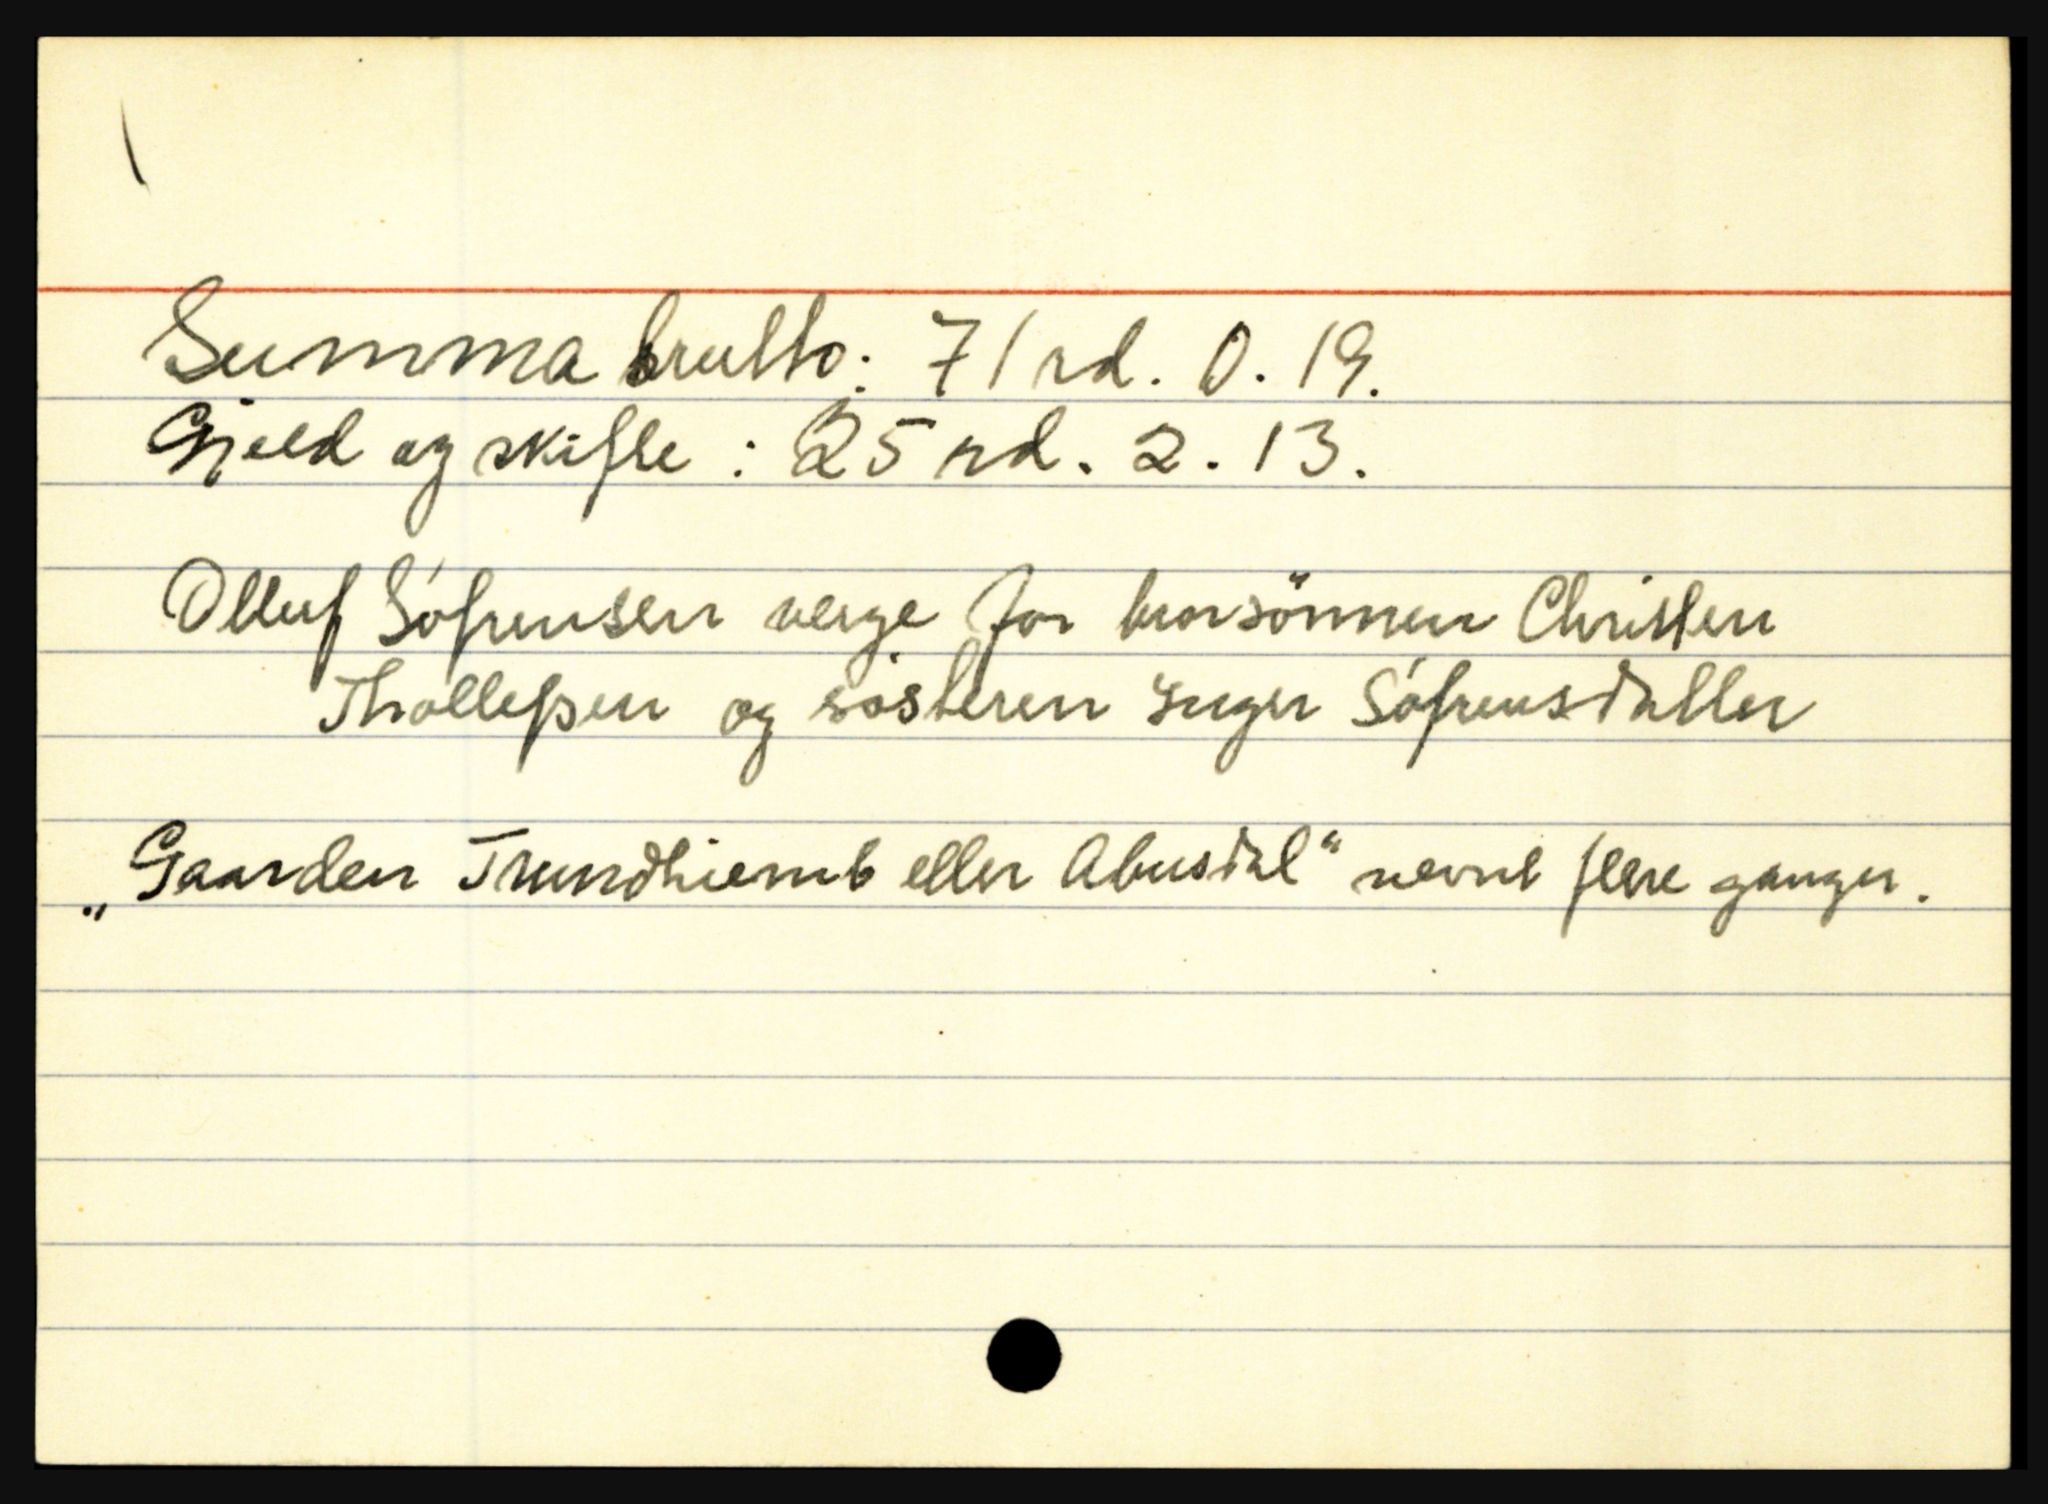 Summa brutto: 71 rd. 0. 19.
Gjeld og skifte: 25 rd. 2. 13.
Olluf Söfrensen verge for brorsönnen Christen
Thollefsen og sösteren Inger Söfrensdatter
„Gaarden Trundhiemb eller Abusdal“ nevnt flere ganger.